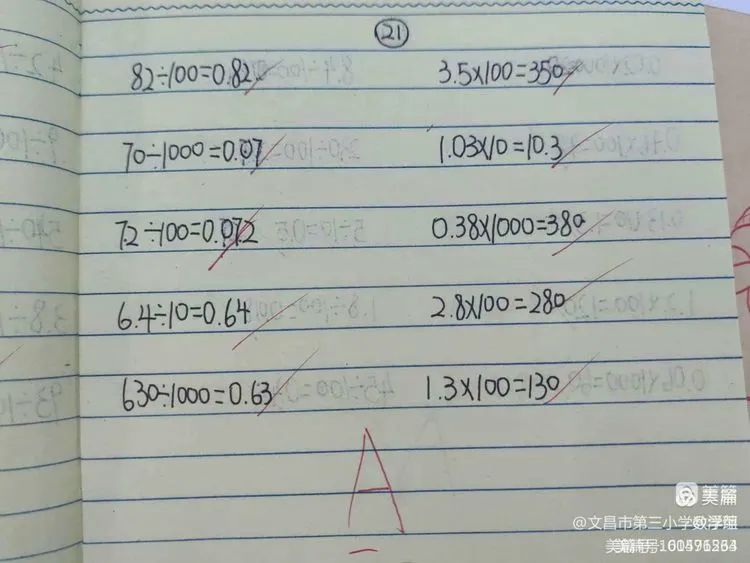 21
82÷100=0.82
3.5×100=350
70÷1000=0.07
1.03×10=10.3
7.2÷100=0.072
0.38×1000=380
6.4÷10=0.64
2.8×100=280
630÷1000=0.63
1.3×100=130
A
美篇
@文昌市第三小学
美篇号